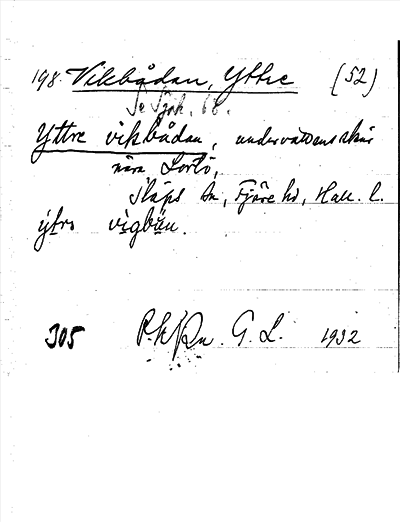 198. Vikbådan, Yttre (52)
Se Sjök. 68.
Yttre vikbådan, undervattensskär
nära Lortö,
Släps sn, Fjäre hd, Hall. l.
ýtrə vìgbån.
305 G. L. 1932